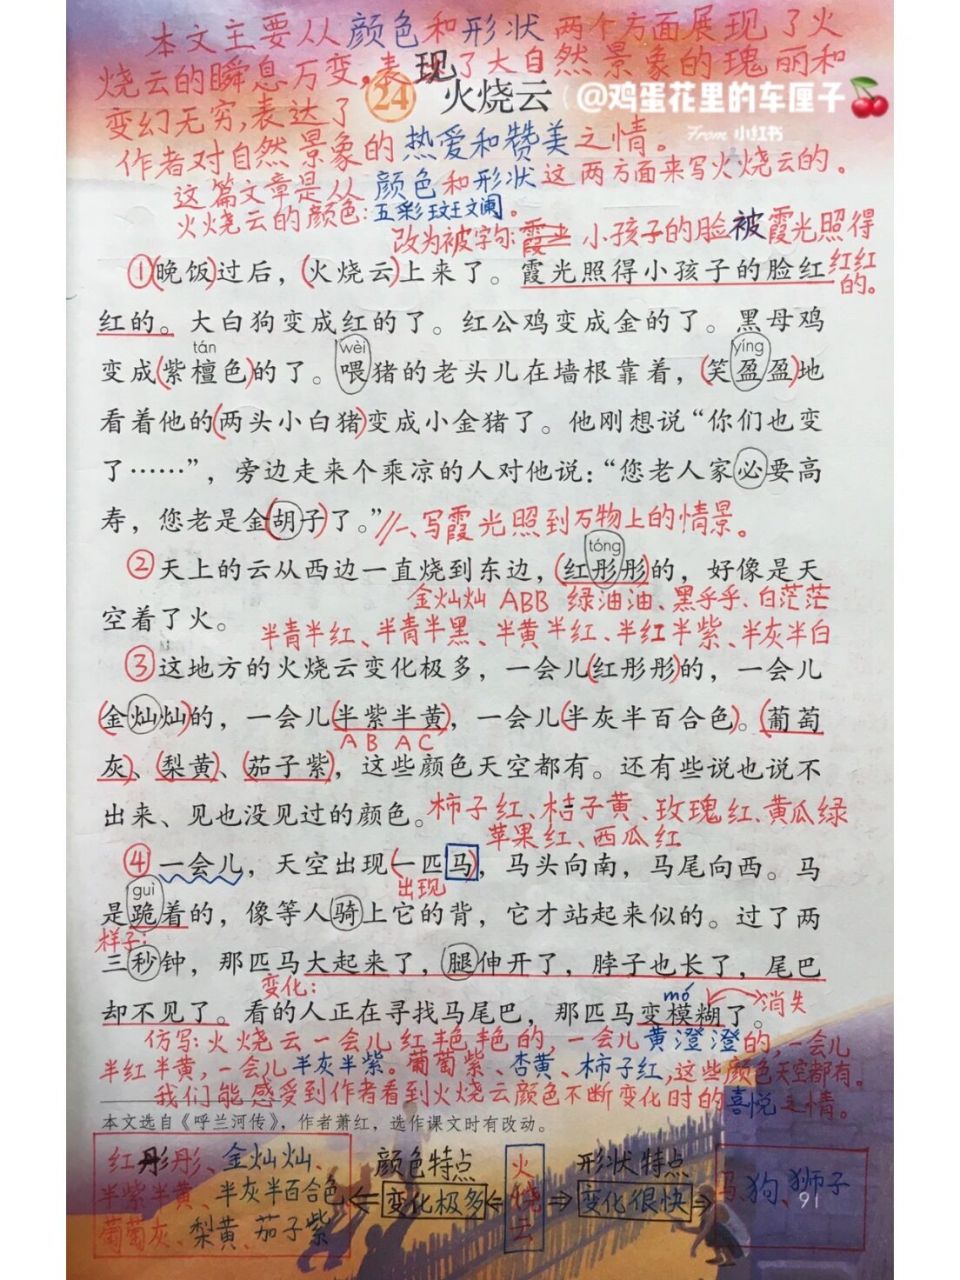 本文主要从颜色和形状两个方面展现了火
烧云的瞬息万变,表现了大自然景象的瑰丽和
变幻无穷,表达了
24 火烧云
@鸡蛋花里的车厘子
From 小红书
作者对自然景象的热爱和赞美之情。
这篇文章是从颜色和形状这两方面来写火烧云的。
火火烧云的颜色:五彩斑斓。
改为被字句: 小孩子的脸被霞光照得
红红的。
①晚饭过后，火烧云上来了。霞光照得小孩子的脸红
红的。大白狗变成红的了。红公鸡变成金的了。黑母鸡
tán wèi yíng
变成紫檀色的了。喂猪的老头儿在墙根靠着，笑盈盈地
看着他的两头小白猪变成小金猪了。他刚想说“你们也变
了……”，旁边走来个乘凉的人对他说：“您老人家必要高
寿，您老是金胡子了。”
一、写霞光照到万物上的情景。
tóng
②天上的云从西边一直烧到东边，红彤彤的，好像是天
金灿灿 ABB 绿油油、黑乎乎、白茫茫
空着了火。
半青半红、半青半黑、半黄半红、半红半紫、半灰半白
③这地方的火烧云变化极多，一会儿红彤彤的，一会儿
金灿灿的，一会儿半紫半黄，一会儿半灰半百合色。葡萄
A B A C
灰、梨黄、茄子紫，这些颜色天空都有。还有些说也说不
出来、见也没见过的颜色。
柿子红、桔子黄、玫瑰红、黄瓜绿
苹果红、西瓜红
④一会儿，天空出现一匹马，马头向南，马尾向西。马
出现
guì
是跪着的，像等人骑上它的背，它才站起来似的。过了两
样子:
三秒钟，那匹马大起来了，腿伸开了，脖子也长了，尾巴
变化:
mó
消失
却不见了。看的人正在寻找马尾巴，那匹马变模糊了。
仿写:火烧云一会儿红艳艳的,一会儿黄澄澄的,一会儿
半红半黄,一会儿半灰半紫。葡萄紫、杏黄、柿子红,这些颜色天空都有。
我们能感受到作者看到火烧云颜色不断变化时的喜悦之情。
本文选自《呼兰河传》，作者萧红，选作课文时有改动。
红彤彤、金灿灿、
半紫半黄、半灰半百合色
葡萄灰、梨黄、茄子紫
颜色特点
变化极多
火烧云
形状特点
变化很快
马、狗、狮子
91